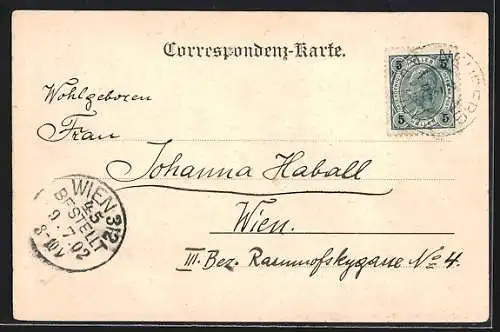 Correspondenz-Karte.
5 5
5 5
Wohlgeboren
Frau
Johanna Haball
Wien.
III. Bez. Rasumofskygasse No 4.
WIEN 3/2
45
BESTELLT
9. 7. 02
8-10V